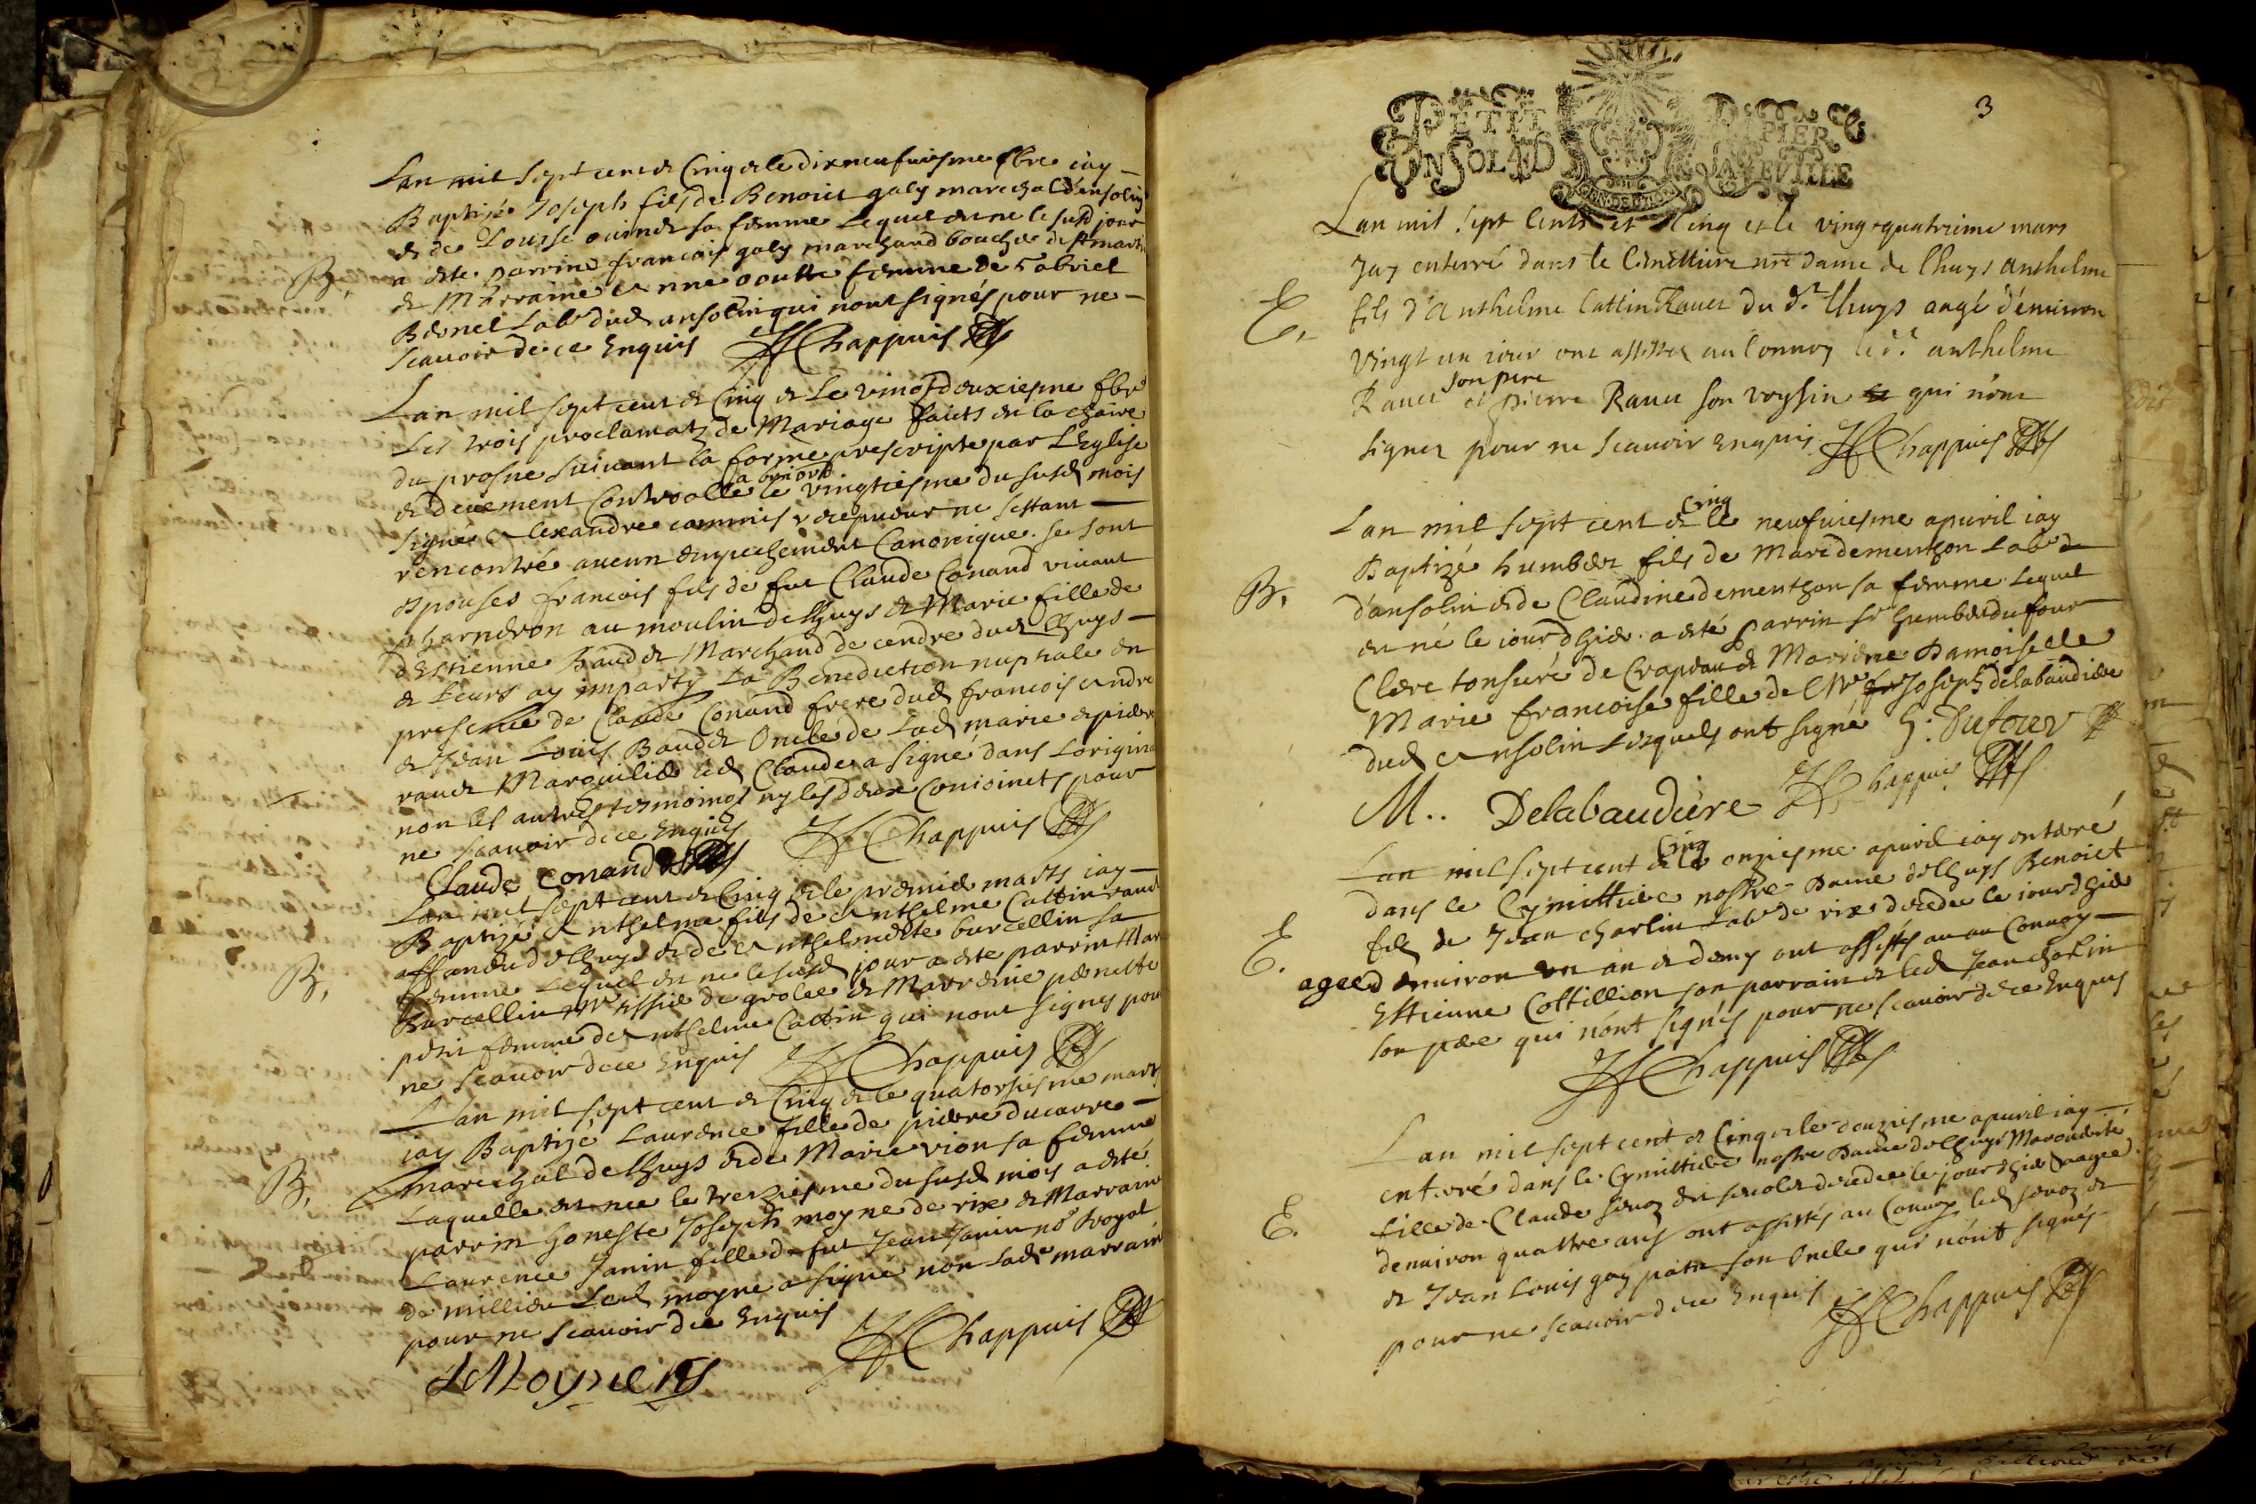 Lan mil sept cent & Cinq & le dixneufuiesme fbre iay
Baptizé Joseph fils de Benoict galy marechal d'ansolin
& de Louise ouinet sa femme lequel est ne le susd jour
a este parrin francois galy marchand boucher de st martin
B,
& Marraine Anne Goutte femme de Gabriel
Bornel Labr dud ansolin qui nont signés pour ne
scauoir de ce Enquis Chappuis
Lan mil sept cent & Cinq & Le vingtdeuxiesme fbre
Les trois proclamatz de Mariage faicts en la chaire
du prosne suiuant la forme prescripte par L'Eglise
& deuement Controolle a briord le vingtiesme du susd mois
signé Alexandre commis receueur ne sestant
rencontré aucun empechement Canonique se sont
espousés francois fils de fut Claude Conand viuant
charneron au moulin de lhuys & Marie fille de
d'Estienne Baudet Marchand de cendre dud Lhuys
& Leurs ay imparty La Benediction nuptiale en
presence de Claude Conand frere dud francois Andre
& Jean Louis Baudet Oncle de Lad marie & pierre
rauet Maruilier led Claude a signé dans Loriginal
non les autres tesmoings ny les deux Conioincts pour
ne scauoir de ce Enquis Chappuis
Claude Conand
Lan mil sept cent & Cinq & le premier mars iay
Baptizé Anthelme fils de Anthelme Cattin rauet
affaneur de lhuys & de Anthelmette burcellin sa
B,
femme Lequel est ne le susd jour a este parrin Mar
Burcellin Mre tissier de grolee & Marreine pernette
petit femme de Anthelme Cattin qui nont signes pour
ne scauoir de ce Enquis Chappuis
Lan mil sept cent & Cinq & le quatorsiesme mars
iay Baptizé Laurence fille de pierre ducarre
B,
marechal de lhuys & de Marie vion sa femme
Laquelle est nee le treziesme du susd mois a esté
parrin honeste Joseph moyne de rix & Marraine
Laurence Janin fille de fut Jean Janin nore Royal
de millieu Led moyne a signé non lade marraine
pour ne scauoir de ce Enquis Chappuis
J Moyne
3
PETIT PAPIER
UN SOL 4 D LA FEVILLE
Lan mil sept Cents et Cinq et le vingtquatrieme mars
Jay enterré dans le Cimettiere nre dame de lhuys anthelme
E,
fils d'Anthelme Cattin Rauet du dt lhuys aagé d'enuiron
vingt un iour ont assistez au Conuoy le dt anthelme
Rauet son pere et pierre Rauet son voysin qui n'ont
signez pour ne scauoir enquis Chappuis
Lan mil sept cent & Cinq le neufuiesme apuril iay
Baptizé humbert fils de Marc dementhon Labr
B,
d'ansolin & de Claudine dementhon sa femme Lequel
est né le iourdhier a esté parrin sr humbert dufour
Clerc tonsuré de Crapeau & Marreine Damoiselle
Marie francoise fille de Mre Joseph delabaudiere
dud Ansolin Lesquels ont signé H. Dufour
M.. Delabaudiere Chappuis
Lan mil sept cent & Cinq le onziesme apuril iay enterré
dans le Cymittiere nostre Dame de lhuys Benoict
E.
fils de Jean charlin Labr de rix decede le iourdhier
ageed enuiron un an & demy ont assistés au Conuoy
Estienne Cottillion son parrain & led Jean charlin
son pere qui n'ont signés pour ne scauoir de ce Enquis
Chappuis
Lan mil sept cent & Cinq & le douziesme apuril iay
enterré dans le Cymittiere nostre Dame de lhuys Margueritte
E.
fille de Claude decedee le jourdhier aagee
denuiron quattre ans ont assistés au Conuoy led &
& Jean Louis son Oncle qui n'ont signés
pour ne scauoir de ce Enquis Chappuis